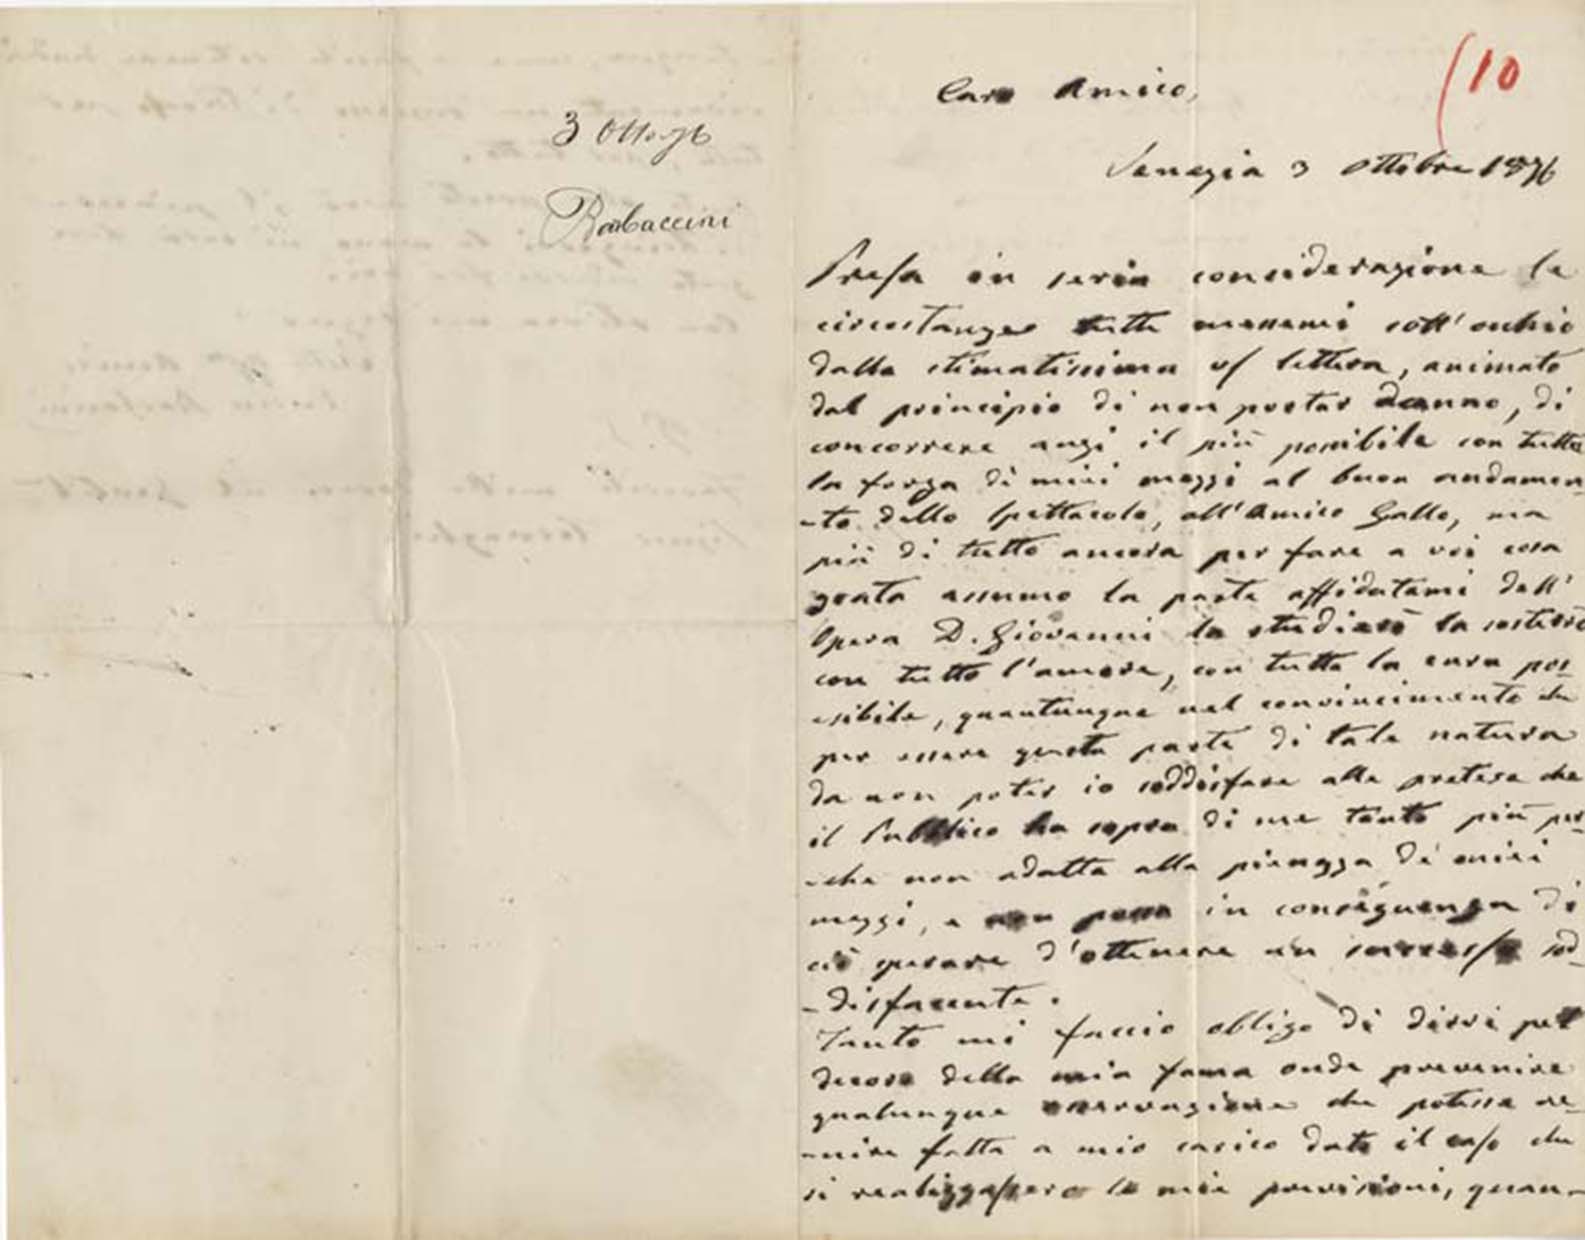 3 Ott. 76
Barbaccini
(10
Caro Amico,
Venezia 3 ottobre 1876
Presa in seria considerazione le
circostanze tutte messemi sott'occhio
dalla stimatissima vs/ lettera, animato
dal principio di non portar danno, di
concorrere anzi il più possibile con tutta
la forza di miei mezzi al buon andamen
-to dello Spettacolo, all'Amico Gallo, ma
più di tutto ancora per fare a voi cosa
grata assumo la parte affidatami dell'
Opera D. Giovanni la studierò la sosterrò
con tutto l'amore, con tutta la cura pos_
_sibile, quantunque nel convincimento che
per essere questa parte di tale natura
da non poter io soddisfare alle pretese che
il Pubblico ha sopra di me tanto più per_
-chè non adatta alla pienezza de' miei
mezzi, e non possa in conseguenza di
ciò sperare d'ottenere un successo sod_
-disfacente.
Tanto mi faccio obbligo di dirvi pel
decoro della mia fama onde prevenire
qualunque osservazione che potesse ve_
-nire fatta a mio carico dato il caso che
si realizzassero le mie previsioni, quan_